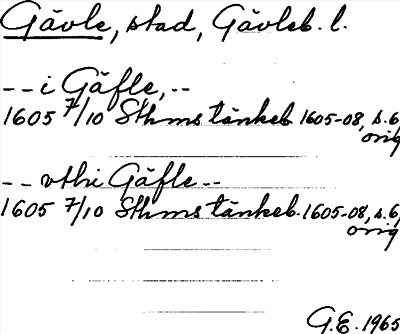 Gävle, stad, Gävleb. l.
-- i Gäfle, --
1605 7/10 Sthms tänkeb. 1605-08, s. 6,
orig
-- vthi Gäfle --
1605 7/10 Sthms tänkeb. 1605-08, s. 6,
orig
G.E. 1965